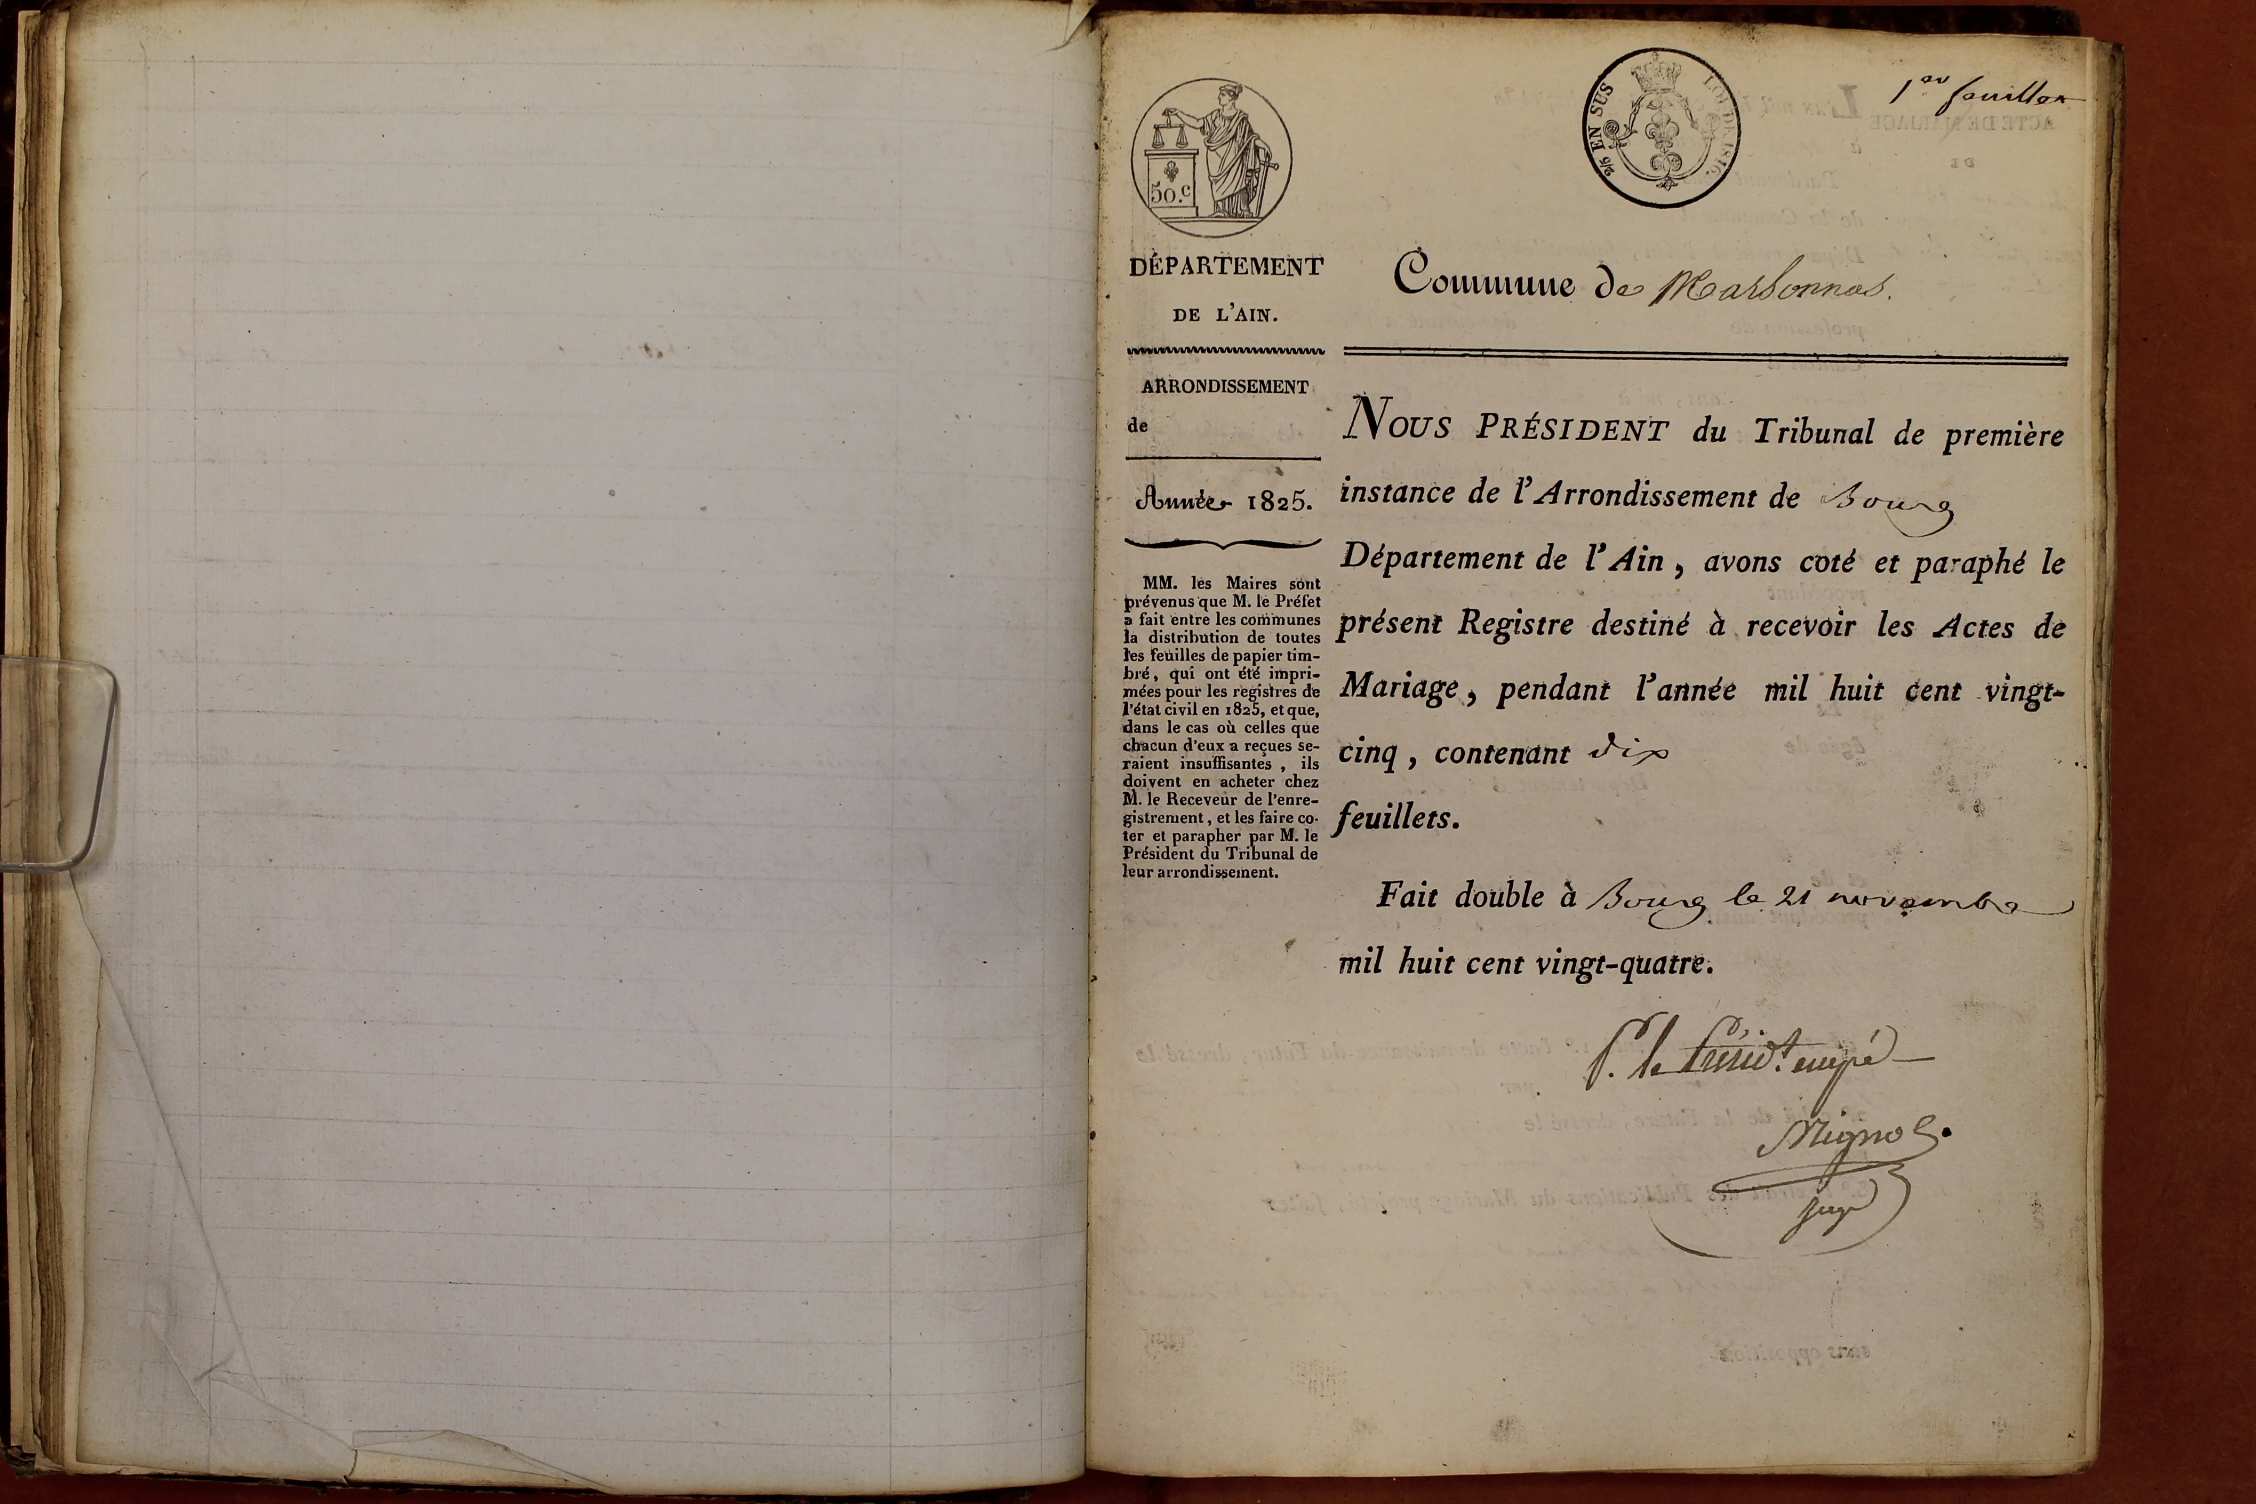 1er feuillet
2/5 EN SUS
LOI DE 1816.
50.c
DÉPARTEMENT
DE L'AIN.
ARRONDISSEMENT
de
Année 1825.
MM. les Maires sont
prévenus que M. le Préfet
a fait entre les communes
la distribution de toutes
les feuilles de papier tim-
bré, qui ont été impri-
mées pour les registres de
l'état civil en 1825, et que,
dans le cas où celles que
chacun d'eux a reçues se-
raient insuffisantes, ils
doivent en acheter chez
M. le Receveur de l'enre-
gistrement, et les faire co-
ter et parapher par M. le
Président du Tribunal de
leur arrondissement.
Commune de Marsonnas.
NOUS PRÉSIDENT du Tribunal de première
instance de l'Arrondissement de Bourg
Département de l'Ain, avons coté et paraphé le
présent Registre destiné à recevoir les Actes de
Mariage, pendant l'année mil huit cent vingt-
cinq, contenant dix
feuillets.
Fait double à Bourg le 21 novembre
mil huit cent vingt-quatre.
P. le Présidt. empé
Mignot.
juge